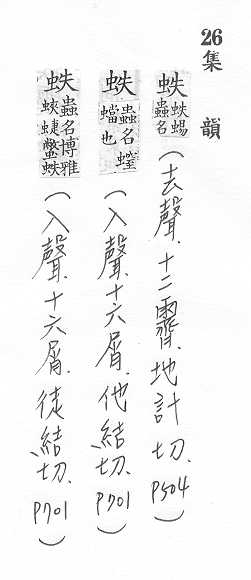 26
集韻
蛈 蛈蜴蟲名(去聲.十二霽.地計切.P504)
蛈 蟲名蟷也(入聲.十六屑.他結切.P701)
蛈 蟲名博雅蛺蜨䗶蛈(入聲.十六屑.徒結切.P701)